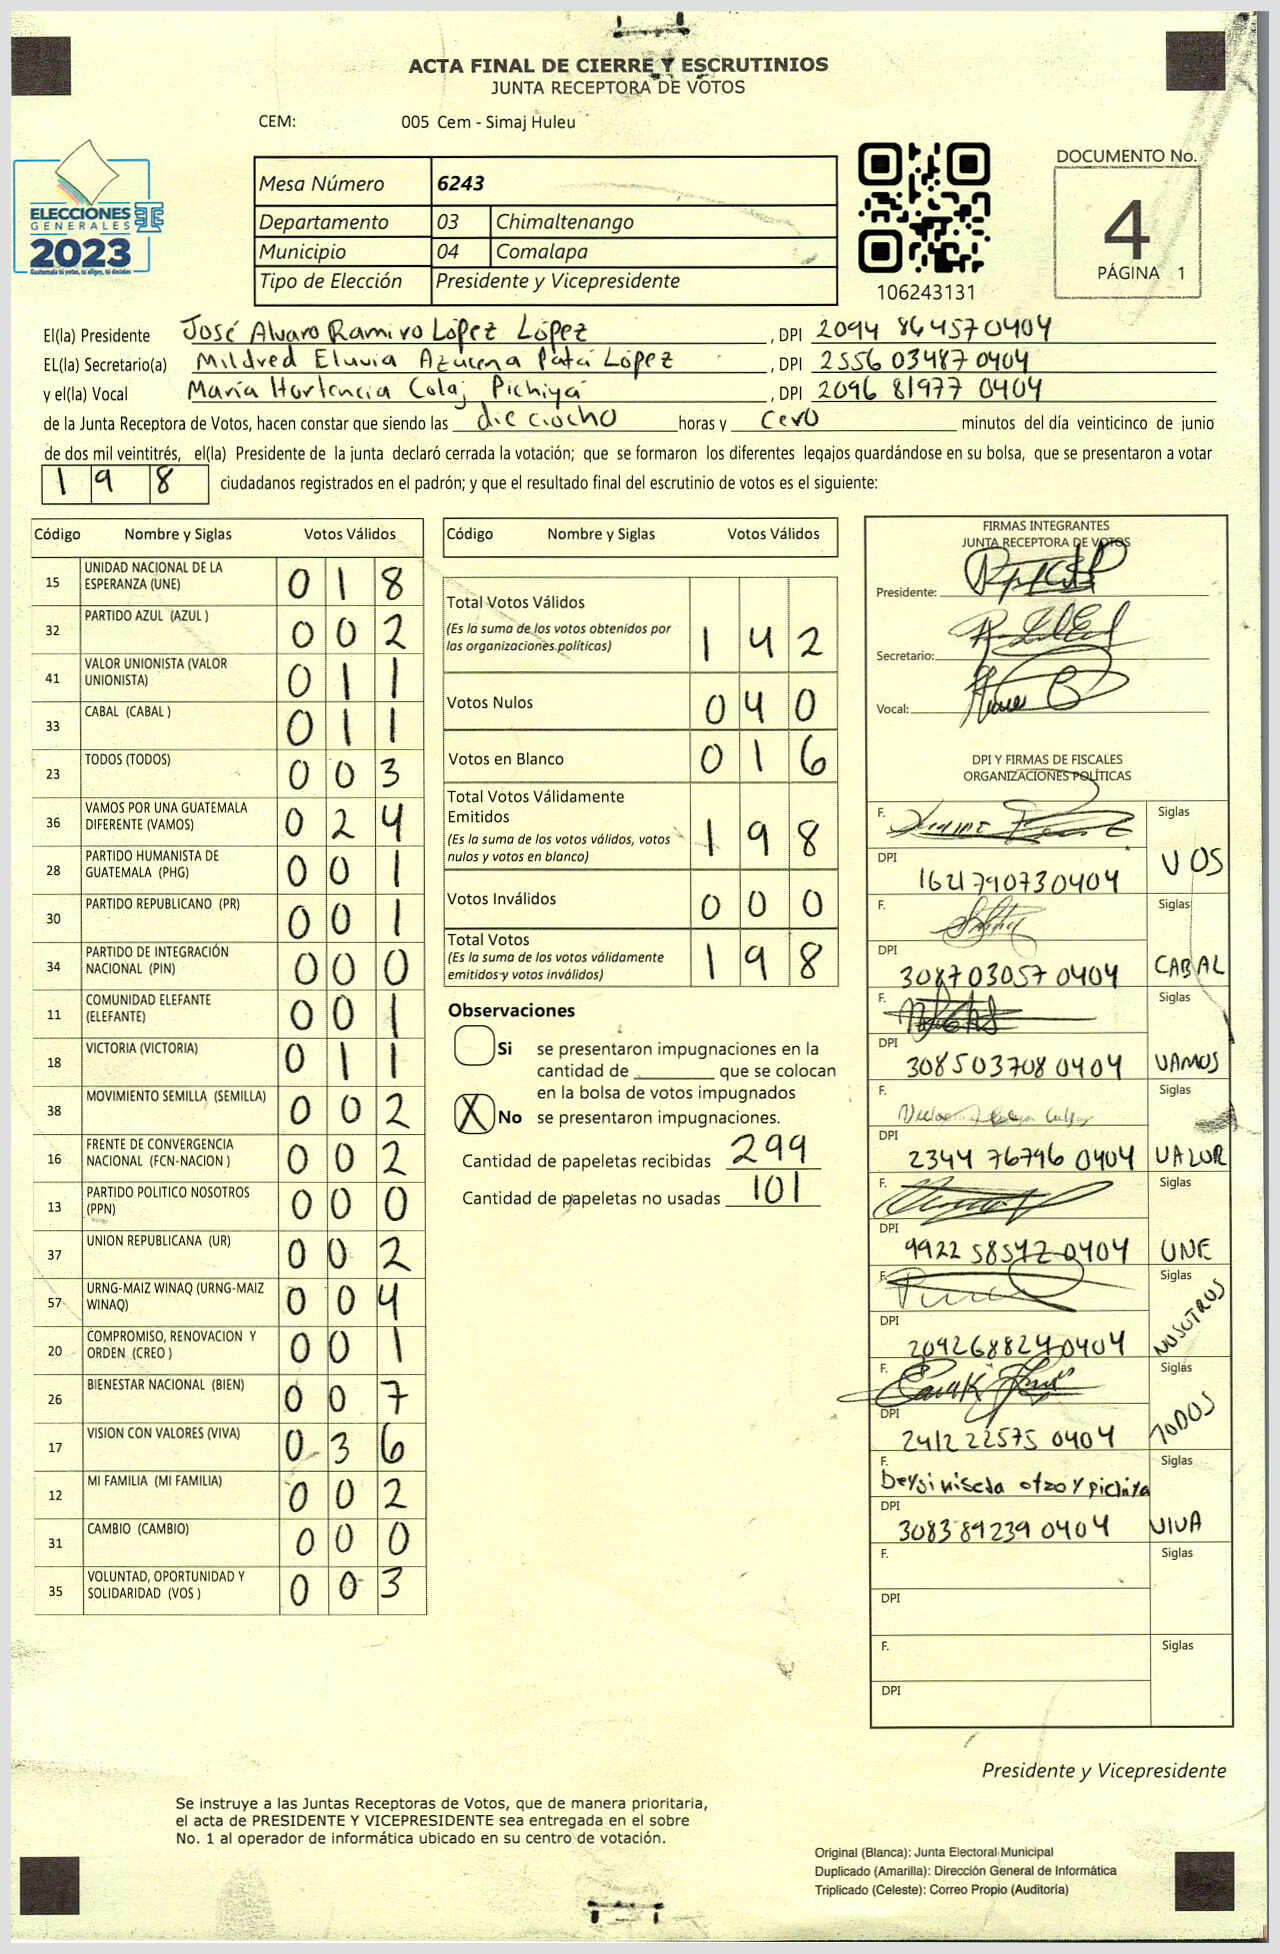 ACTA FINAL DE CIERRE Y ESCRUTINIOS
JUNTA RECEPTORA DE VOTOS
CEM: 005 Cem - Simaj Huleu
ELECCIONES
GENERALES
2023
Guatemala tú votas, tú eliges, tú decides
Mesa Número 6243
Departamento 03 Chimaltenango
Municipio 04 Comalapa
Tipo de Elección Presidente y Vicepresidente
106243131
DOCUMENTO No.
4
PÁGINA 1
El(la) Presidente José Alvaro Ramiro López López , DPI 2094 86457 0404
EL(la) Secretario(a) Mildred Eluvia Azucena Patá López , DPI 2556 03487 0404
y el(la) Vocal María Hortencia Colaj Pichiyá , DPI 2096 81977 0404
de la Junta Receptora de Votos, hacen constar que siendo las dieciocho horas y cero minutos del día veinticinco de junio
de dos mil veintitrés, el(la) Presidente de la junta declaró cerrada la votación; que se formaron los diferentes legajos guardándose en su bolsa, que se presentaron a votar
1 9 8 ciudadanos registrados en el padrón; y que el resultado final del escrutinio de votos es el siguiente:
Código Nombre y Siglas Votos Válidos
15 UNIDAD NACIONAL DE LA ESPERANZA (UNE) 0 1 8
32 PARTIDO AZUL (AZUL ) 0 0 2
41 VALOR UNIONISTA (VALOR UNIONISTA) 0 1 1
33 CABAL (CABAL ) 0 1 1
23 TODOS (TODOS) 0 0 3
36 VAMOS POR UNA GUATEMALA DIFERENTE (VAMOS) 0 2 4
28 PARTIDO HUMANISTA DE GUATEMALA (PHG) 0 0 1
30 PARTIDO REPUBLICANO (PR) 0 0 1
34 PARTIDO DE INTEGRACIÓN NACIONAL (PIN) 0 0 0
11 COMUNIDAD ELEFANTE (ELEFANTE) 0 0 1
18 VICTORIA (VICTORIA) 0 1 1
38 MOVIMIENTO SEMILLA (SEMILLA) 0 0 2
16 FRENTE DE CONVERGENCIA NACIONAL (FCN-NACION ) 0 0 2
13 PARTIDO POLITICO NOSOTROS (PPN) 0 0 0
37 UNION REPUBLICANA (UR) 0 0 2
57 URNG-MAIZ WINAQ (URNG-MAIZ WINAQ) 0 0 4
20 COMPROMISO, RENOVACION Y ORDEN (CREO ) 0 0 1
26 BIENESTAR NACIONAL (BIEN) 0 0 7
17 VISION CON VALORES (VIVA) 0 3 6
12 MI FAMILIA (MI FAMILIA) 0 0 2
31 CAMBIO (CAMBIO) 0 0 0
35 VOLUNTAD, OPORTUNIDAD Y SOLIDARIDAD (VOS ) 0 0 3
Código Nombre y Siglas Votos Válidos
Total Votos Válidos
(Es la suma de los votos obtenidos por
las organizaciones políticas) 1 4 2
Votos Nulos 0 4 0
Votos en Blanco 0 1 6
Total Votos Válidamente
Emitidos
(Es la suma de los votos válidos, votos
nulos y votos en blanco) 1 9 8
Votos Inválidos 0 0 0
Total Votos
(Es la suma de los votos válidamente
emitidos y votos inválidos) 1 9 8
Observaciones
Si se presentaron impugnaciones en la
cantidad de ________ que se colocan
en la bolsa de votos impugnados
X No se presentaron impugnaciones.
Cantidad de papeletas recibidas 299
Cantidad de papeletas no usadas 101
FIRMAS INTEGRANTES
JUNTA RECEPTORA DE VOTOS
Presidente:
Secretario:
Vocal:
DPI Y FIRMAS DE FISCALES
ORGANIZACIONES POLÍTICAS
F. Siglas
DPI 1621790730404 VOS
F. Siglas
DPI 308703057 0404 CABAL
F. Siglas
DPI 308503708 0404 VAMOS
F. Siglas
DPI 2344 76796 0404 VALOR
F. Siglas
DPI 9922 58547 0404 UNE
F. Siglas
DPI 2092688240404 NOSOTROS
F. Siglas
DPI 2412 22575 0404 TODOS
F. Siglas
DPI 3083 89239 0404 VIVA
F. Siglas
DPI
F. Siglas
DPI
Presidente y Vicepresidente
Se instruye a las Juntas Receptoras de Votos, que de manera prioritaria,
el acta de PRESIDENTE Y VICEPRESIDENTE sea entregada en el sobre
No. 1 al operador de informática ubicado en su centro de votación.
Original (Blanca): Junta Electoral Municipal
Duplicado (Amarilla): Dirección General de Informática
Triplicado (Celeste): Correo Propio (Auditoría)